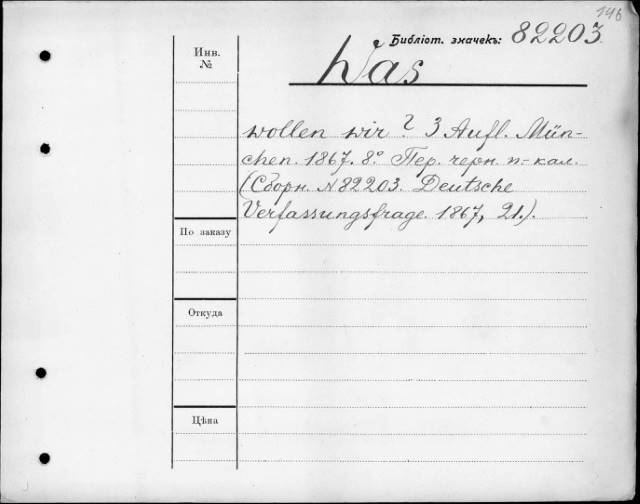 146
Библіот. значекъ: 82203.
Инв.
№
Was
wollen wir? 3 Aufl. Mün-
chen. 1867. 8.° Пер. черн. п.-кал.
(Сборн. N 82203. Deutsche
Verfassungsfrage. 1867, 21.).
По заказу
Откуда
Цѣна